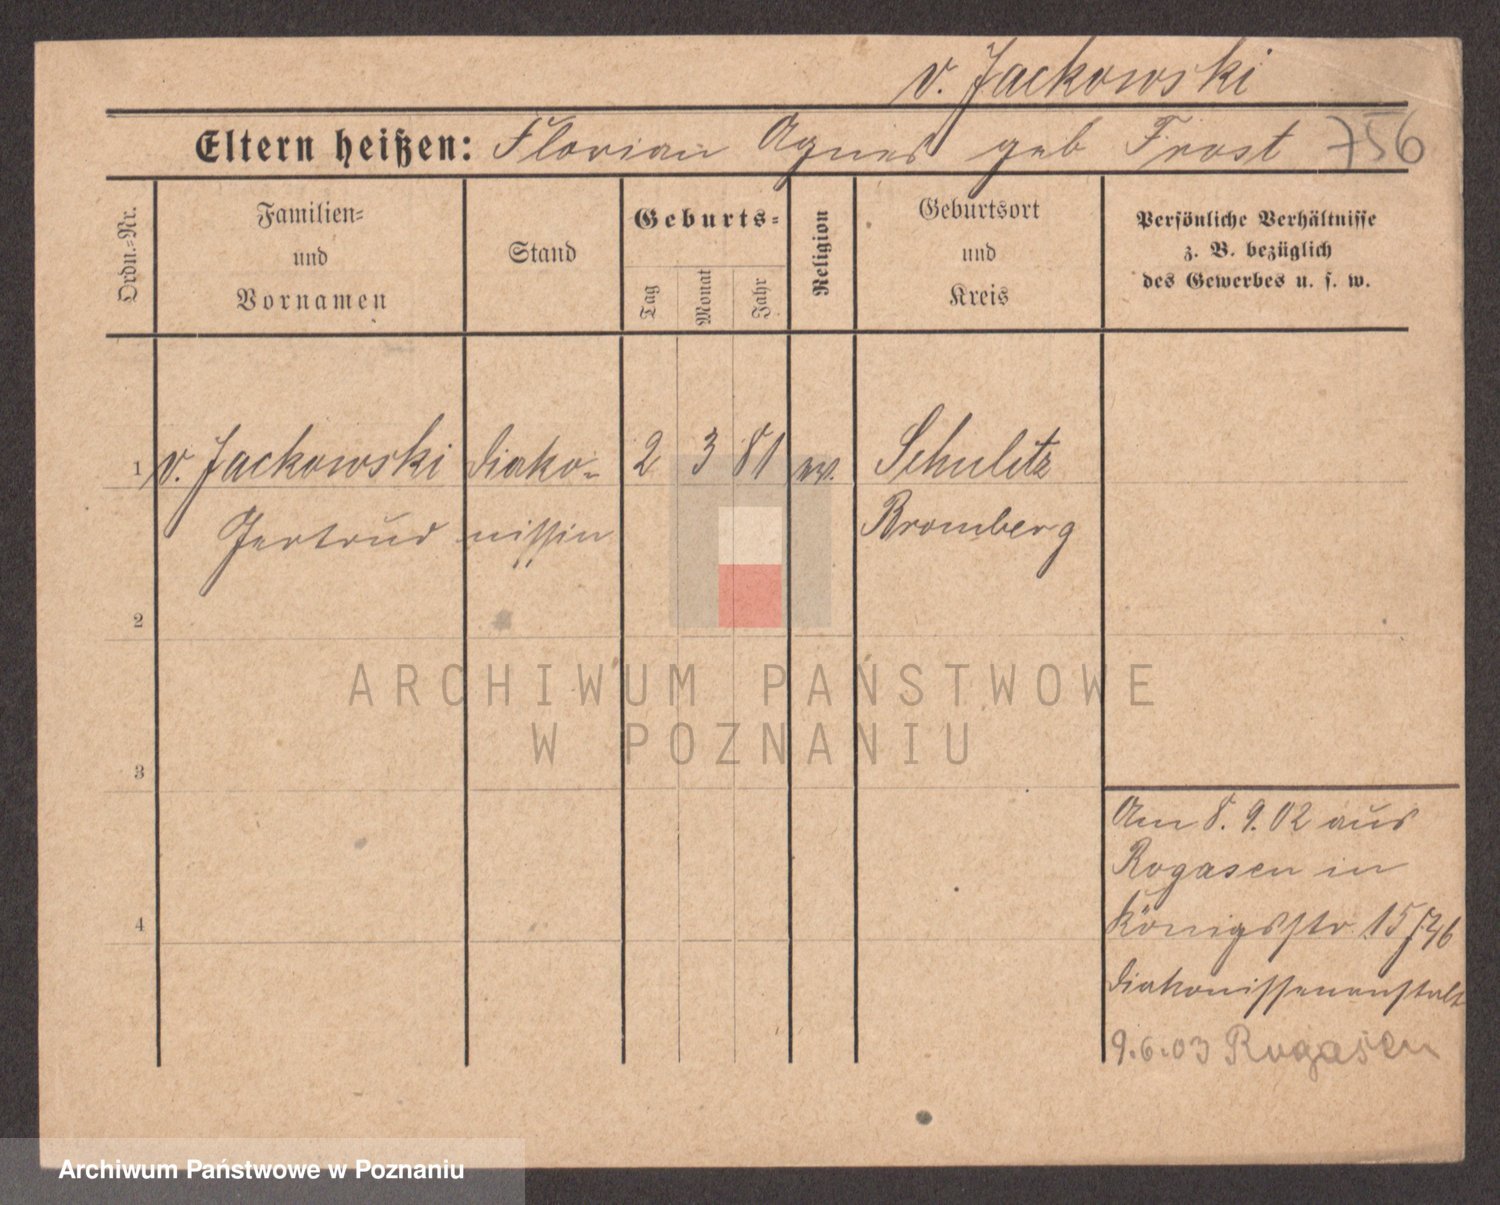 v. Jackowski
Eltern heißen: Florian Agnes geb Frost 756
Ordn.=Nr.
Familien=
und
Vornamen
Stand
Geburts=
Tag
Monat
Jahr
Religion
Geburtsort
und
Kreis
Persönliche Verhältnisse
z. B. bezüglich
des Gewerbes u. s. w.
1 v. Jackowski Diako- 2 3 81 ev. Schulitz
Gertrud nissin Bromberg
2
3
4
Am 8. 9. 02 aus
Rogasen in
Königsstr 15
Diakonissenanstalt
9.6.03 Rogasen
ARCHIWUM PAŃSTWOWE
W POZNANIU
Archiwum Państwowe w Poznaniu